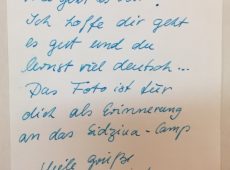 Ich hoffe dir geht
es gut und du
lernst viel deutsch...
Das Foto ist für
dich als Erinnerung
an das Sidziua-Camp
Viele Grüße